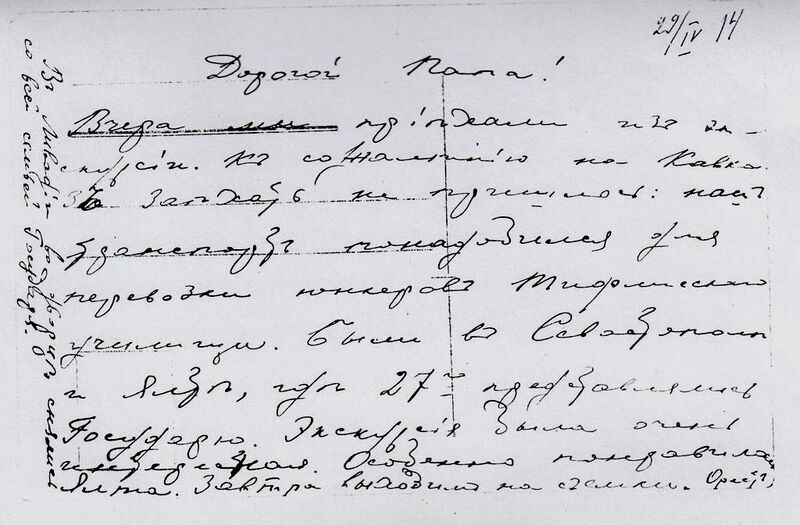 29/IV 14
Дорогой Папа!
Вчера мы пріѣхали изъ эк-
скурсіи. Къ сожалѣнію на Кавка-
зъ заѣхать не пришлось: нашъ
транспортъ понадобился для
перевозки юнкеровъ Тифлисскаго
училища. Были въ Севастополѣ
и Ялтѣ, гдѣ 27го представлялись
Государю. Экскурсія была очень
интересная. Особенно понравилась
Ялта. Завтра выходимъ на съемки. Орестъ
Въ Ливадіи во дворцѣ снялись
со всей семьей Государя.